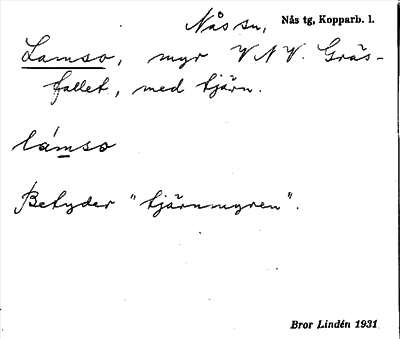 Nås sn, Nås tg, Kopparb. l.
Lamso, myr V N V. Gräs-
fallet, med tjärn.
lámso
Betyder "tjärnmyren".
Bror Lindén 1931